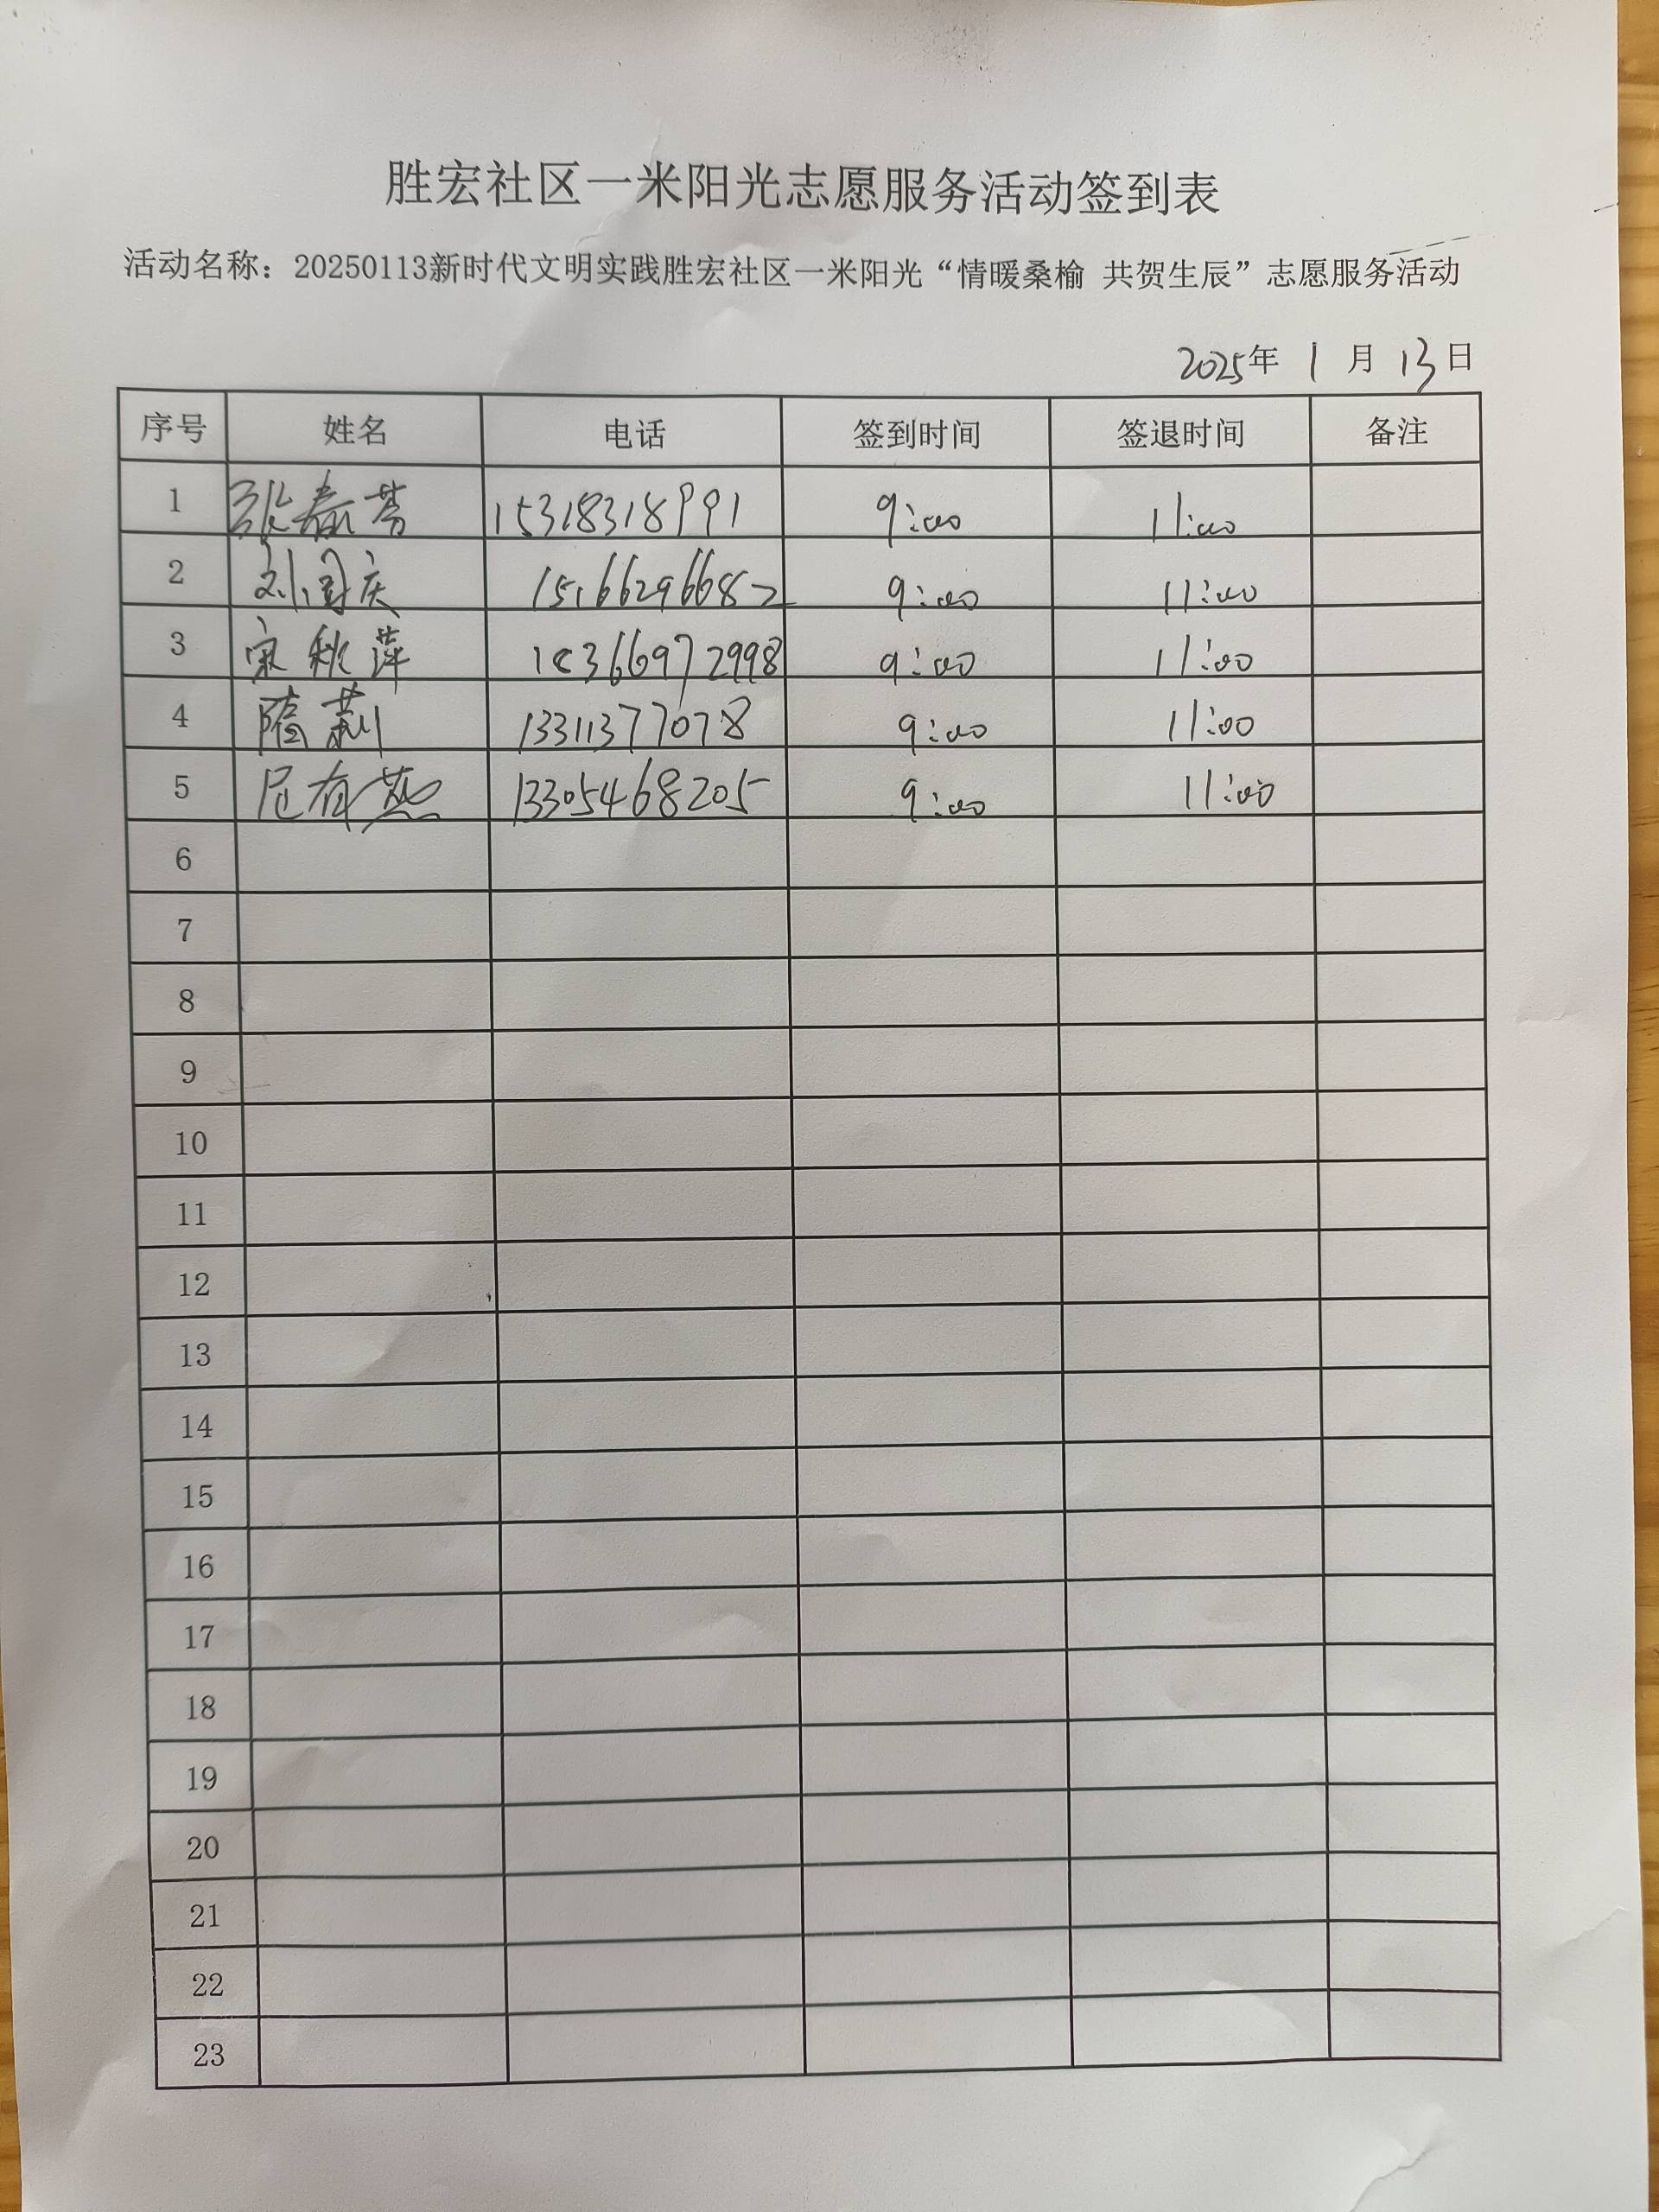 胜宏社区一米阳光志愿服务活动签到表
活动名称：20250113新时代文明实践胜宏社区一米阳光“情暖桑榆 共贺生辰”志愿服务活动
2025年 1 月 13日
序号 姓名 电话 签到时间 签退时间 备注
1 张春芳 15318318991 9:00 11:00
2 刘国庆 15166296682 9:00 11:00
3 宋秋萍 18366972998 9:00 11:00
4 隋莉 13311377078 9:00 11:00
5 有燕 13305468205 9:00 11:00
6
7
8
9
10
11
12
13
14
15
16
17
18
19
20
21
22
23